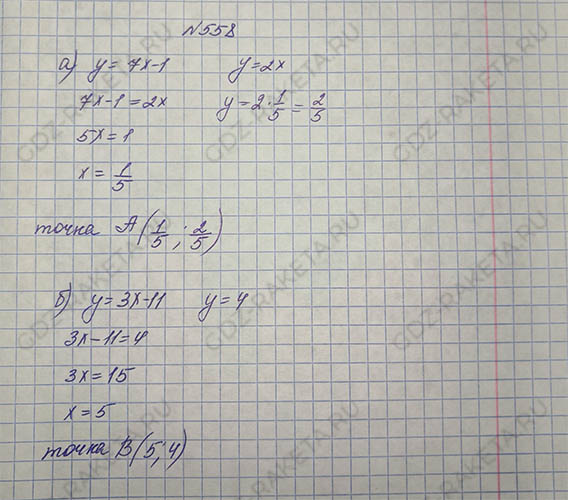 №558
а) y = 7x-1   y=2x
7x-1 = 2x   y=2·1/5=2/5
5x=1
x = 1/5
точка A(1/5; 2/5)
б) y=3x-11   y=4
3x-11=4
3x=15
x=5
точка B(5;4)
GDZ-RAKETA.RU
GDZ-RAKETA.RU
GDZ-RAKETA.RU
GDZ-RAKETA.RU
GDZ-RAKETA.RU
GDZ-RAKETA.RU
GDZ-RAKETA.RU
GDZ-RAKETA.RU
GDZ-RAKETA.RU